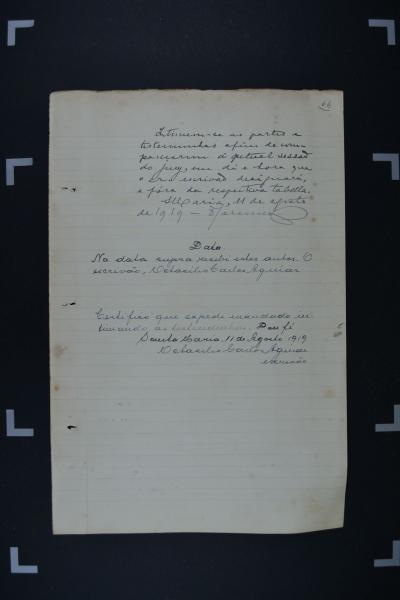 66
Intimem-se as partes e
testemunhas afim de com-
parecerem á actual sessão
do jury, em dia e hora que
o Snr. escrivão designará,
e fóra da respectiva tabella.
S. Maria, 11 de Agosto
de 1919 —
Data
Na data supra recebi estes autos. O
escrivão, Octacilio Carlos Aguiar
Certifico que expede mandado in-
timando as testemunhas. Dou fé
Santa Maria 11 de Agosto 1919
Octacilio Carlos Aguiar
escrivão